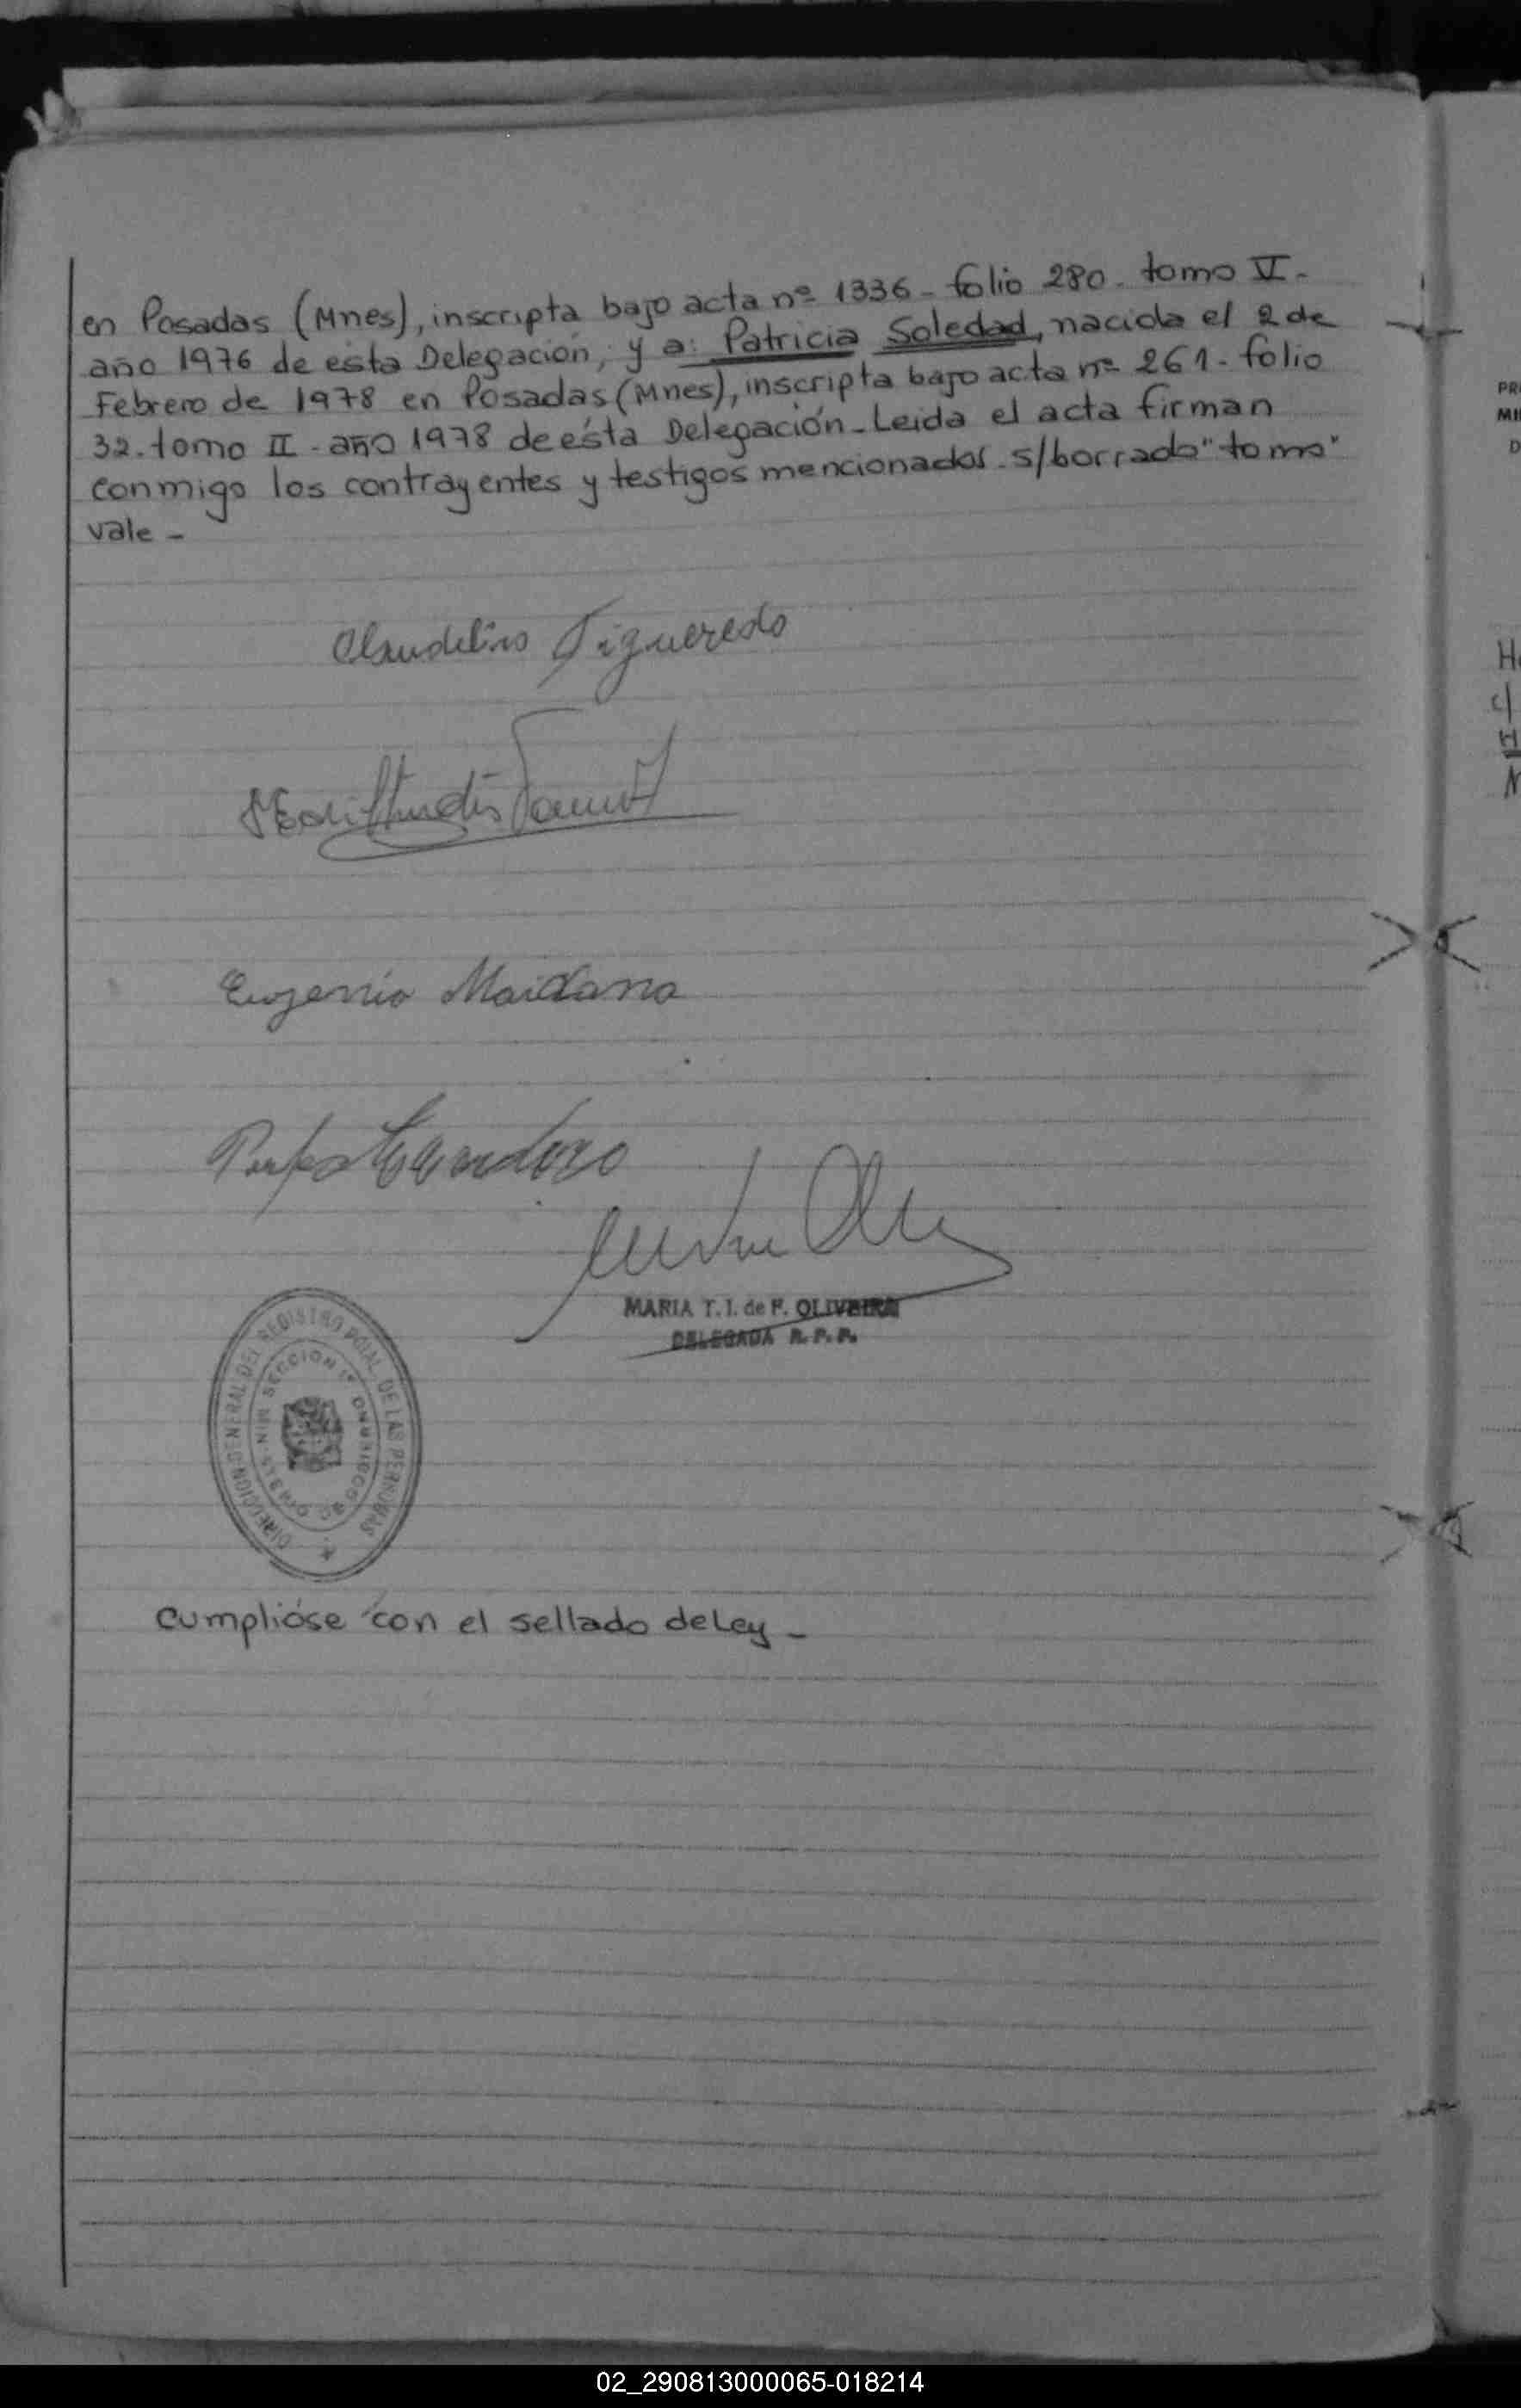 en Posadas (Mnes), inscripta bajo acta nº 1336 - folio 280 - tomo VI -
año 1976 de ésta Delegación, y a: Patricia Soledad, nacida el 2 de
Febrero de 1978 en Posadas (Mnes), inscripta bajo acta nº 261 - folio
32 - tomo II - año 1978 de ésta Delegación - Leida el acta firman
conmigo los contrayentes y testigos mencionados - s/borrado "tomo"
vale -
Claudelino Figueredo
Eugenio Maidana
Cardozo
MARIA T. I. de F. OLIVEIRA
DELEGADA R. P. P.
DIRECCION GENERAL DEL REGISTRO PCIAL. DE LAS PERSONAS
SECCION 1ª
MIN
GOBIERNO
cumplióse con el sellado de Ley -
PR
MI
D
H
c/
H
N
02_290813000065-018214